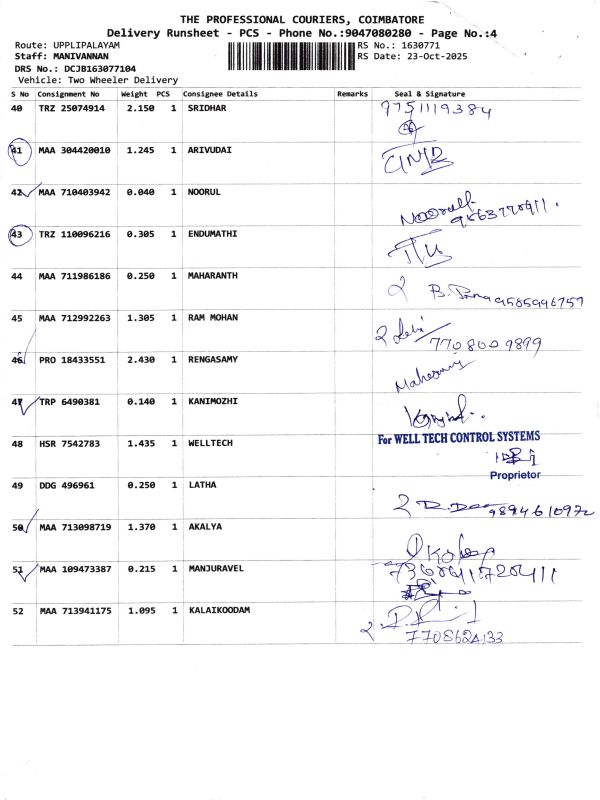 THE PROFESSIONAL COURIERS, COIMBATORE
Delivery Runsheet - PCS - Phone No.:9047080280 - Page No.:4
Route: UPPLIPALAYAM RS No.: 1630771
Staff: MANIVANNAN RS Date: 23-Oct-2025
DRS No.: DCJB163077104
Vehicle: Two Wheeler Delivery
S No Consignment No Weight PCS Consignee Details Remarks Seal & Signature
40 TRZ 25074914 2.150 1 SRIDHAR 9751119384
41 MAA 304420010 1.245 1 ARIVUDAI
42 MAA 710403942 0.040 1 NOORUL
Noorull
43 TRZ 110096216 0.305 1 ENDUMATHI
44 MAA 711986186 0.250 1 MAHARANTH
9585996757
45 MAA 712992263 1.305 1 RAM MOHAN
7708009899
46 PRO 18433551 2.430 1 RENGASAMY
47 TRP 6490381 0.140 1 KANIMOZHI
For WELL TECH CONTROL SYSTEMS
48 HSR 7542783 1.435 1 WELLTECH
Proprietor
49 DDG 496961 0.250 1 LATHA
9894610972
50 MAA 713098719 1.370 1 AKALYA
51 MAA 109473387 0.215 1 MANJURAVEL
52 MAA 713941175 1.095 1 KALAIKOODAM